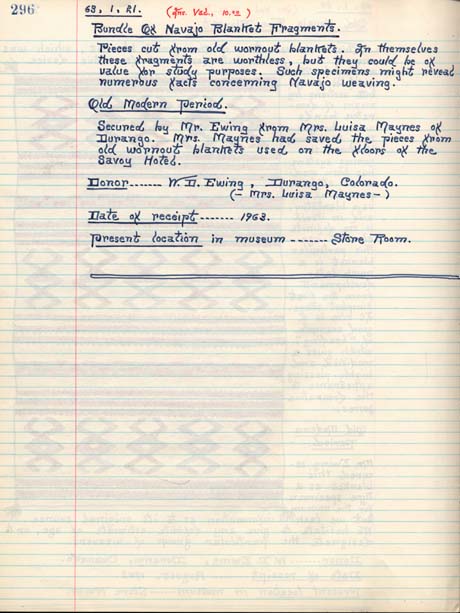 296
63. 1. R1. (Ins. Val., 10.00)
Bundle Of Navajo Blanket Fragments.
Pieces cut from old wornout blankets. In themselves
these fragments are worthless, but they could be of
value for study purposes. Such specimens might reveal
numerous facts concerning Navajo weaving.
Old Modern Period.
Secured by Mr. Ewing from Mrs. Luisa Maynes of
Durango. Mrs. Maynes had saved the pieces from
old wornout blankets used on the floors of the
Savoy Hotel.
Donor ------- W. D. Ewing, Durango, Colorado.
(- Mrs. Luisa Maynes -)
Date of receipt ------- 1963.
Present location in museum ------- Store Room.